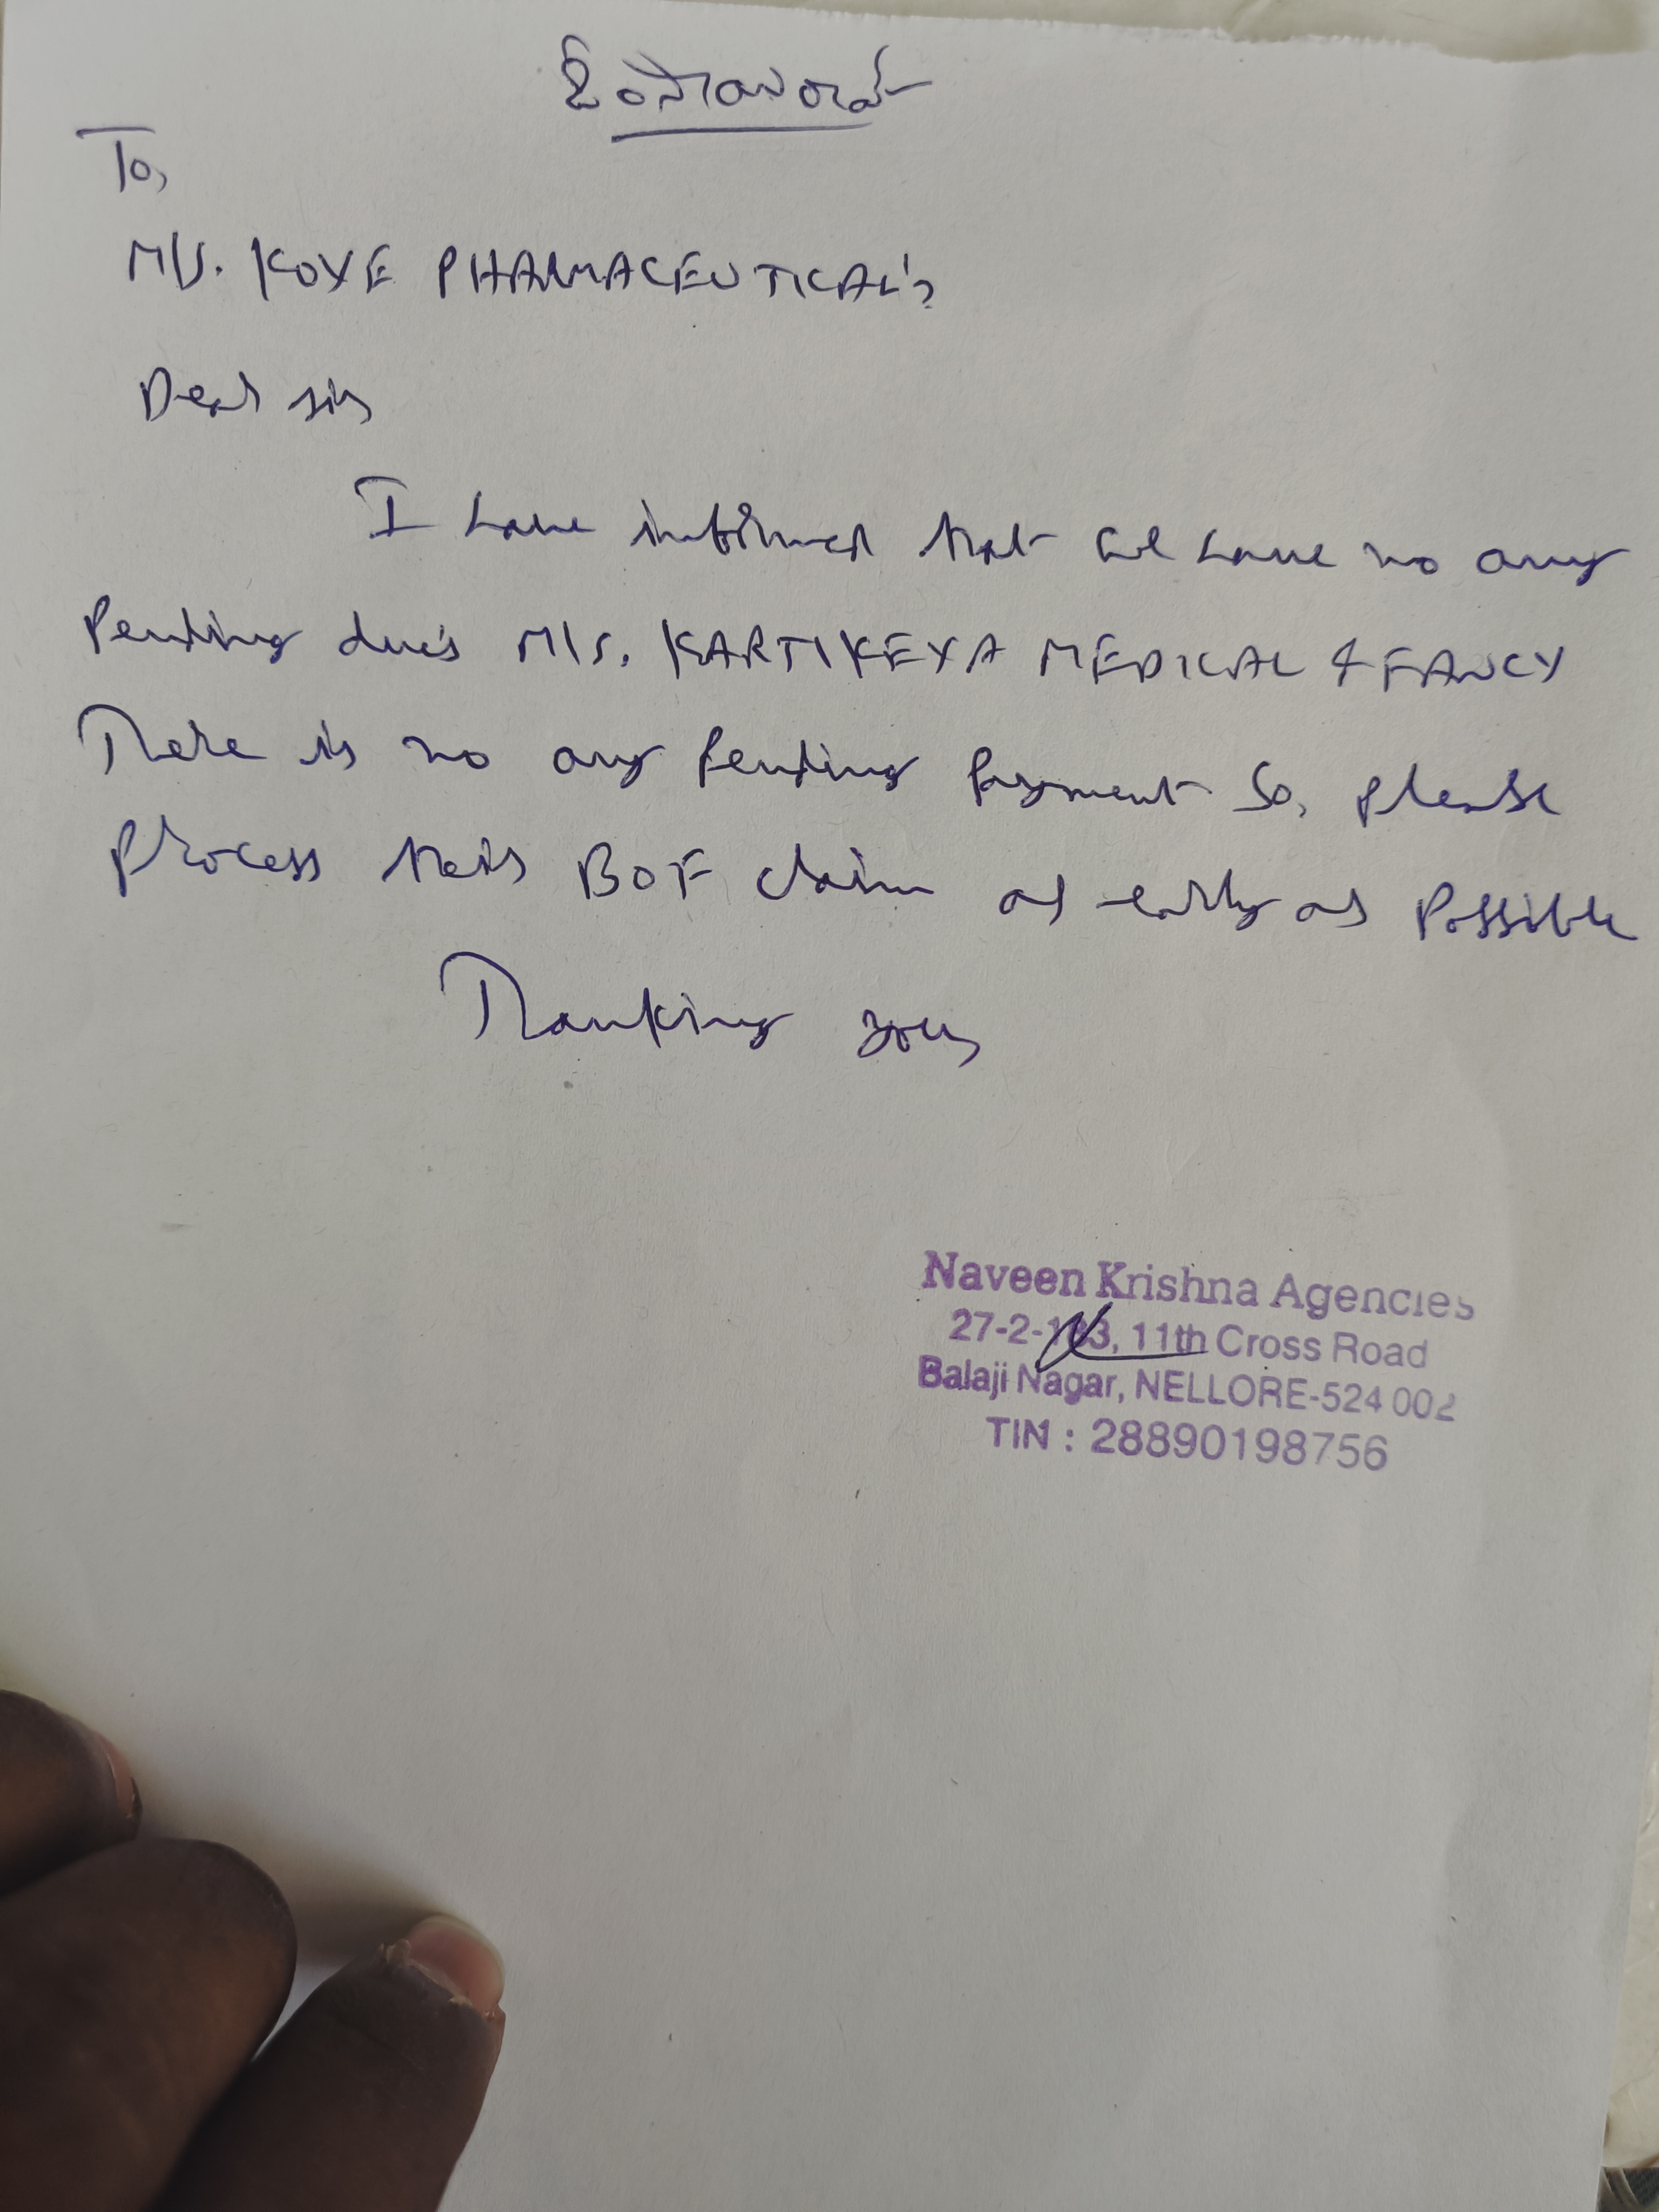 To,
M/s. KOYE PHARMACEUTICAL's
Dear sir,
I have informed that we have no any
Pending due's M/s. KARTIKEYA MEDICAL & FANCY
There is no any pending payment So, please
process this BOF claim as early as possible
Thanking you,
Naveen Krishna Agencies
27-2-183, 11th Cross Road
Balaji Nagar, NELLORE-524 002
TIN : 28890198756